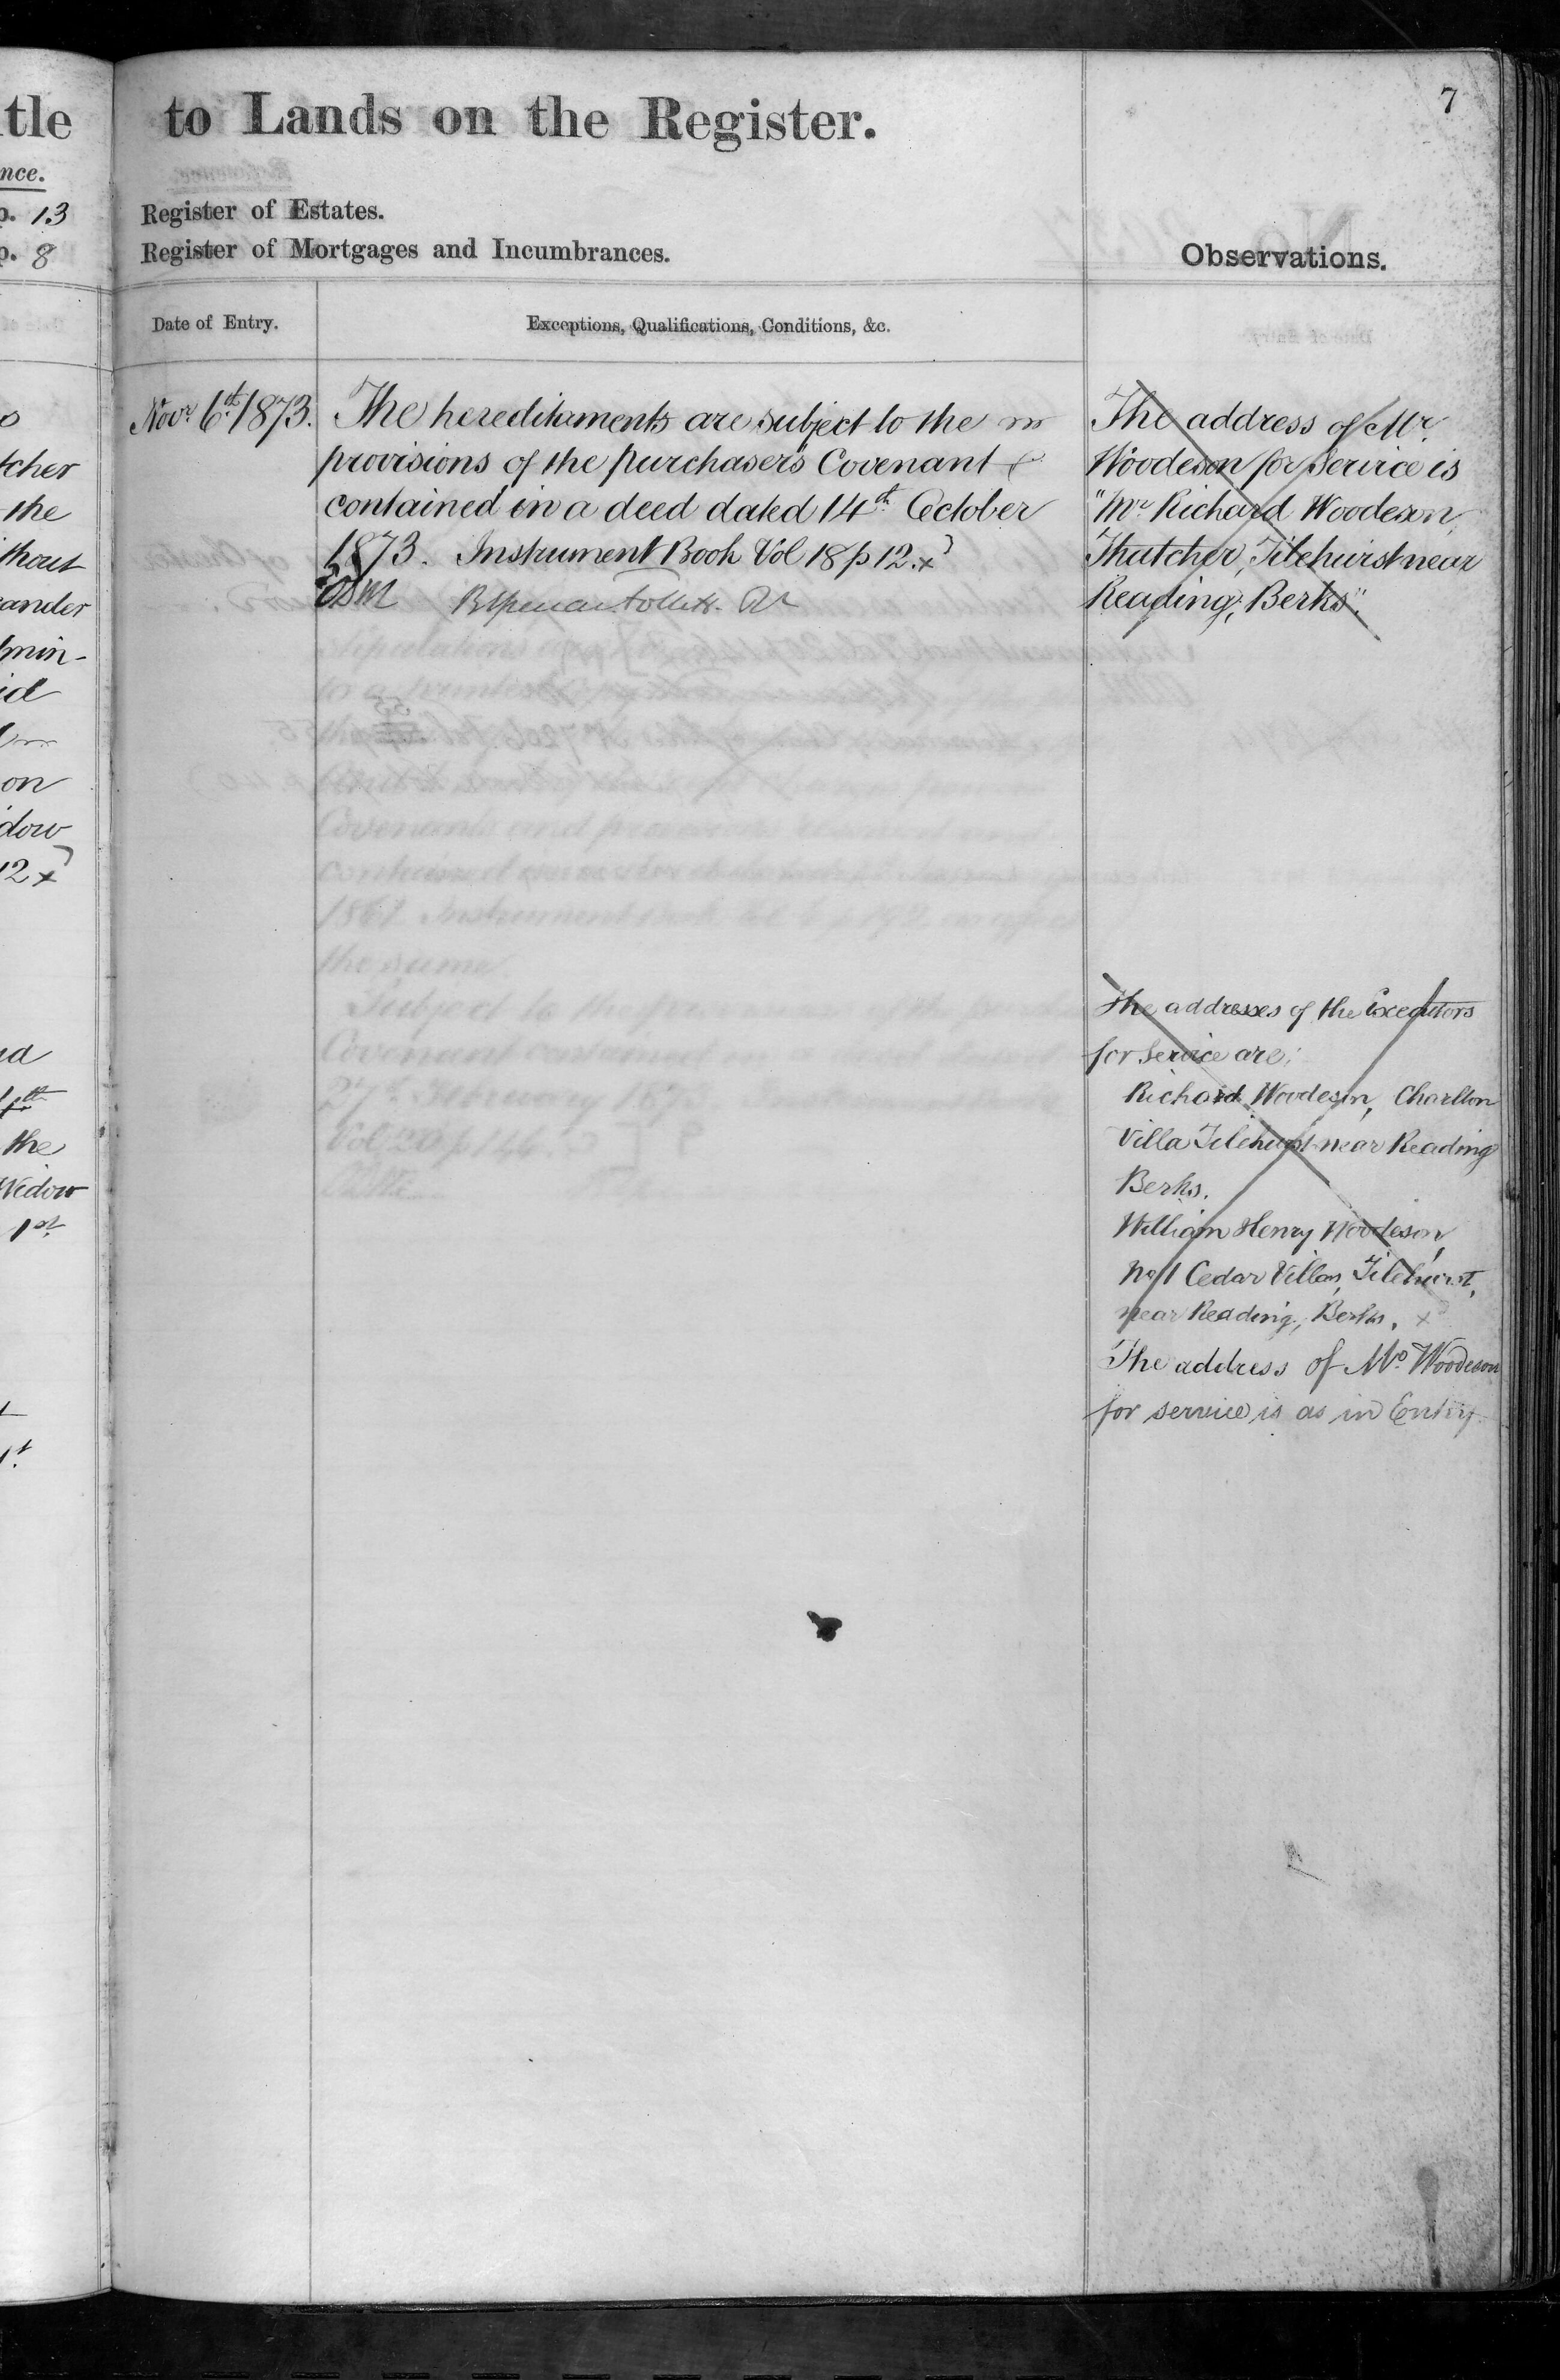 tle
nce.
p. 13
p. 8
tcher
the
thout
ander
min-
id
on
dow
12 x
the
Widow
1st
to Lands on the Register.
7
Register of Estates.
Register of Mortgages and Incumbrances.
Observations.
Date of Entry.
Exceptions, Qualifications, Conditions, &c.
Novr 6th 1873.
The hereditaments are subject to the
provisions of the purchasers Covenant
contained in a deed dated 14th October
1873. Instrument Book Vol 18 p 12. x
The address of Mr.
Woodeson for Service is
"Mr Richard Woodeson,
Thatcher, Tilehurst near
Reading, Berks".
The addresses of the Executors
for Service are:
Richard Woodeson, Charlton
Villa Tilehurst near Reading
Berks.
William Henry Woodeson,
No 1 Cedar Villas, Tilehurst,
near Reading, Berks. x
The address of Mrs Woodeson
for service is as in Entry.